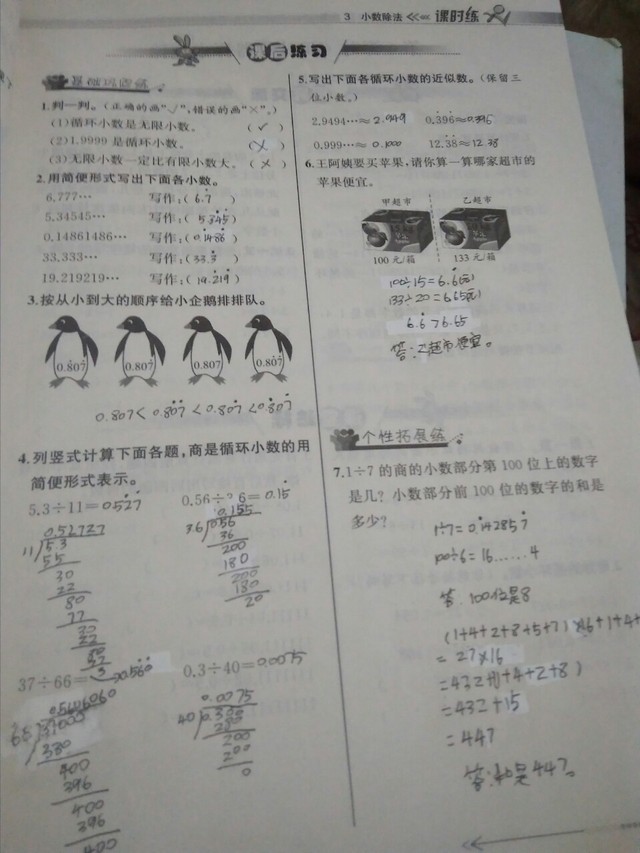 3 小数除法 <<< 课时练
课后练习
1.判一判。(正确的画“✓”,错误的画“×”。)
(1)循环小数是无限小数。 (✓)
(2)1.9999 是循环小数。 (×)
(3)无限小数一定比有限小数大。(×)
2.用简便形式写出下面各小数。
6.777… 写作:(6.7̇)
5.34545… 写作:(5.34̇5̇)
0.14861486… 写作:(0.1̇486̇)
33.333… 写作:(33.3̇)
19.219219… 写作:(19.2̇19̇)
3.按从小到大的顺序给小企鹅排排队。
0.8̇07̇ 0.807̇ 0.807 0.80̇7̇
4.列竖式计算下面各题,商是循环小数的用
简便形式表示。
5.3÷11=
0.52727
11
5.3
55
30
22
80
77
30
22
80
77
3
0.155
36
0.56
36
200
180
200
180
20
37÷66=
0.3÷40=0.0075
400
396
400
396
400
0.0075
40
200
200
0
5.写出下面各循环小数的近似数。(保留三
位小数。)
2.9494…≈2.949 0.3̇96̇≈0.396
0.999…≈0.1000 12.3̇8̇≈12.38
6.王阿姨要买苹果,请你算一算哪家超市的
苹果便宜。
甲超市 乙超市
100 元/箱 133 元/箱
100÷15=6.6̇(元)
133÷20=6.65(元)
6.6̇>6.65
答:乙超市便宜。
个性拓展练
7.1÷7 的商的小数部分第 100 位上的数字
是几?小数部分前 100 位的数字的和是
多少?
1÷7=0.1̇42857̇
100÷6=16……4
答:100位是8
(1+4+2+8+5+7)×16+1+4+
=27×16
=432+(1+4+2+8)
=432+15
=447
答:和是447。